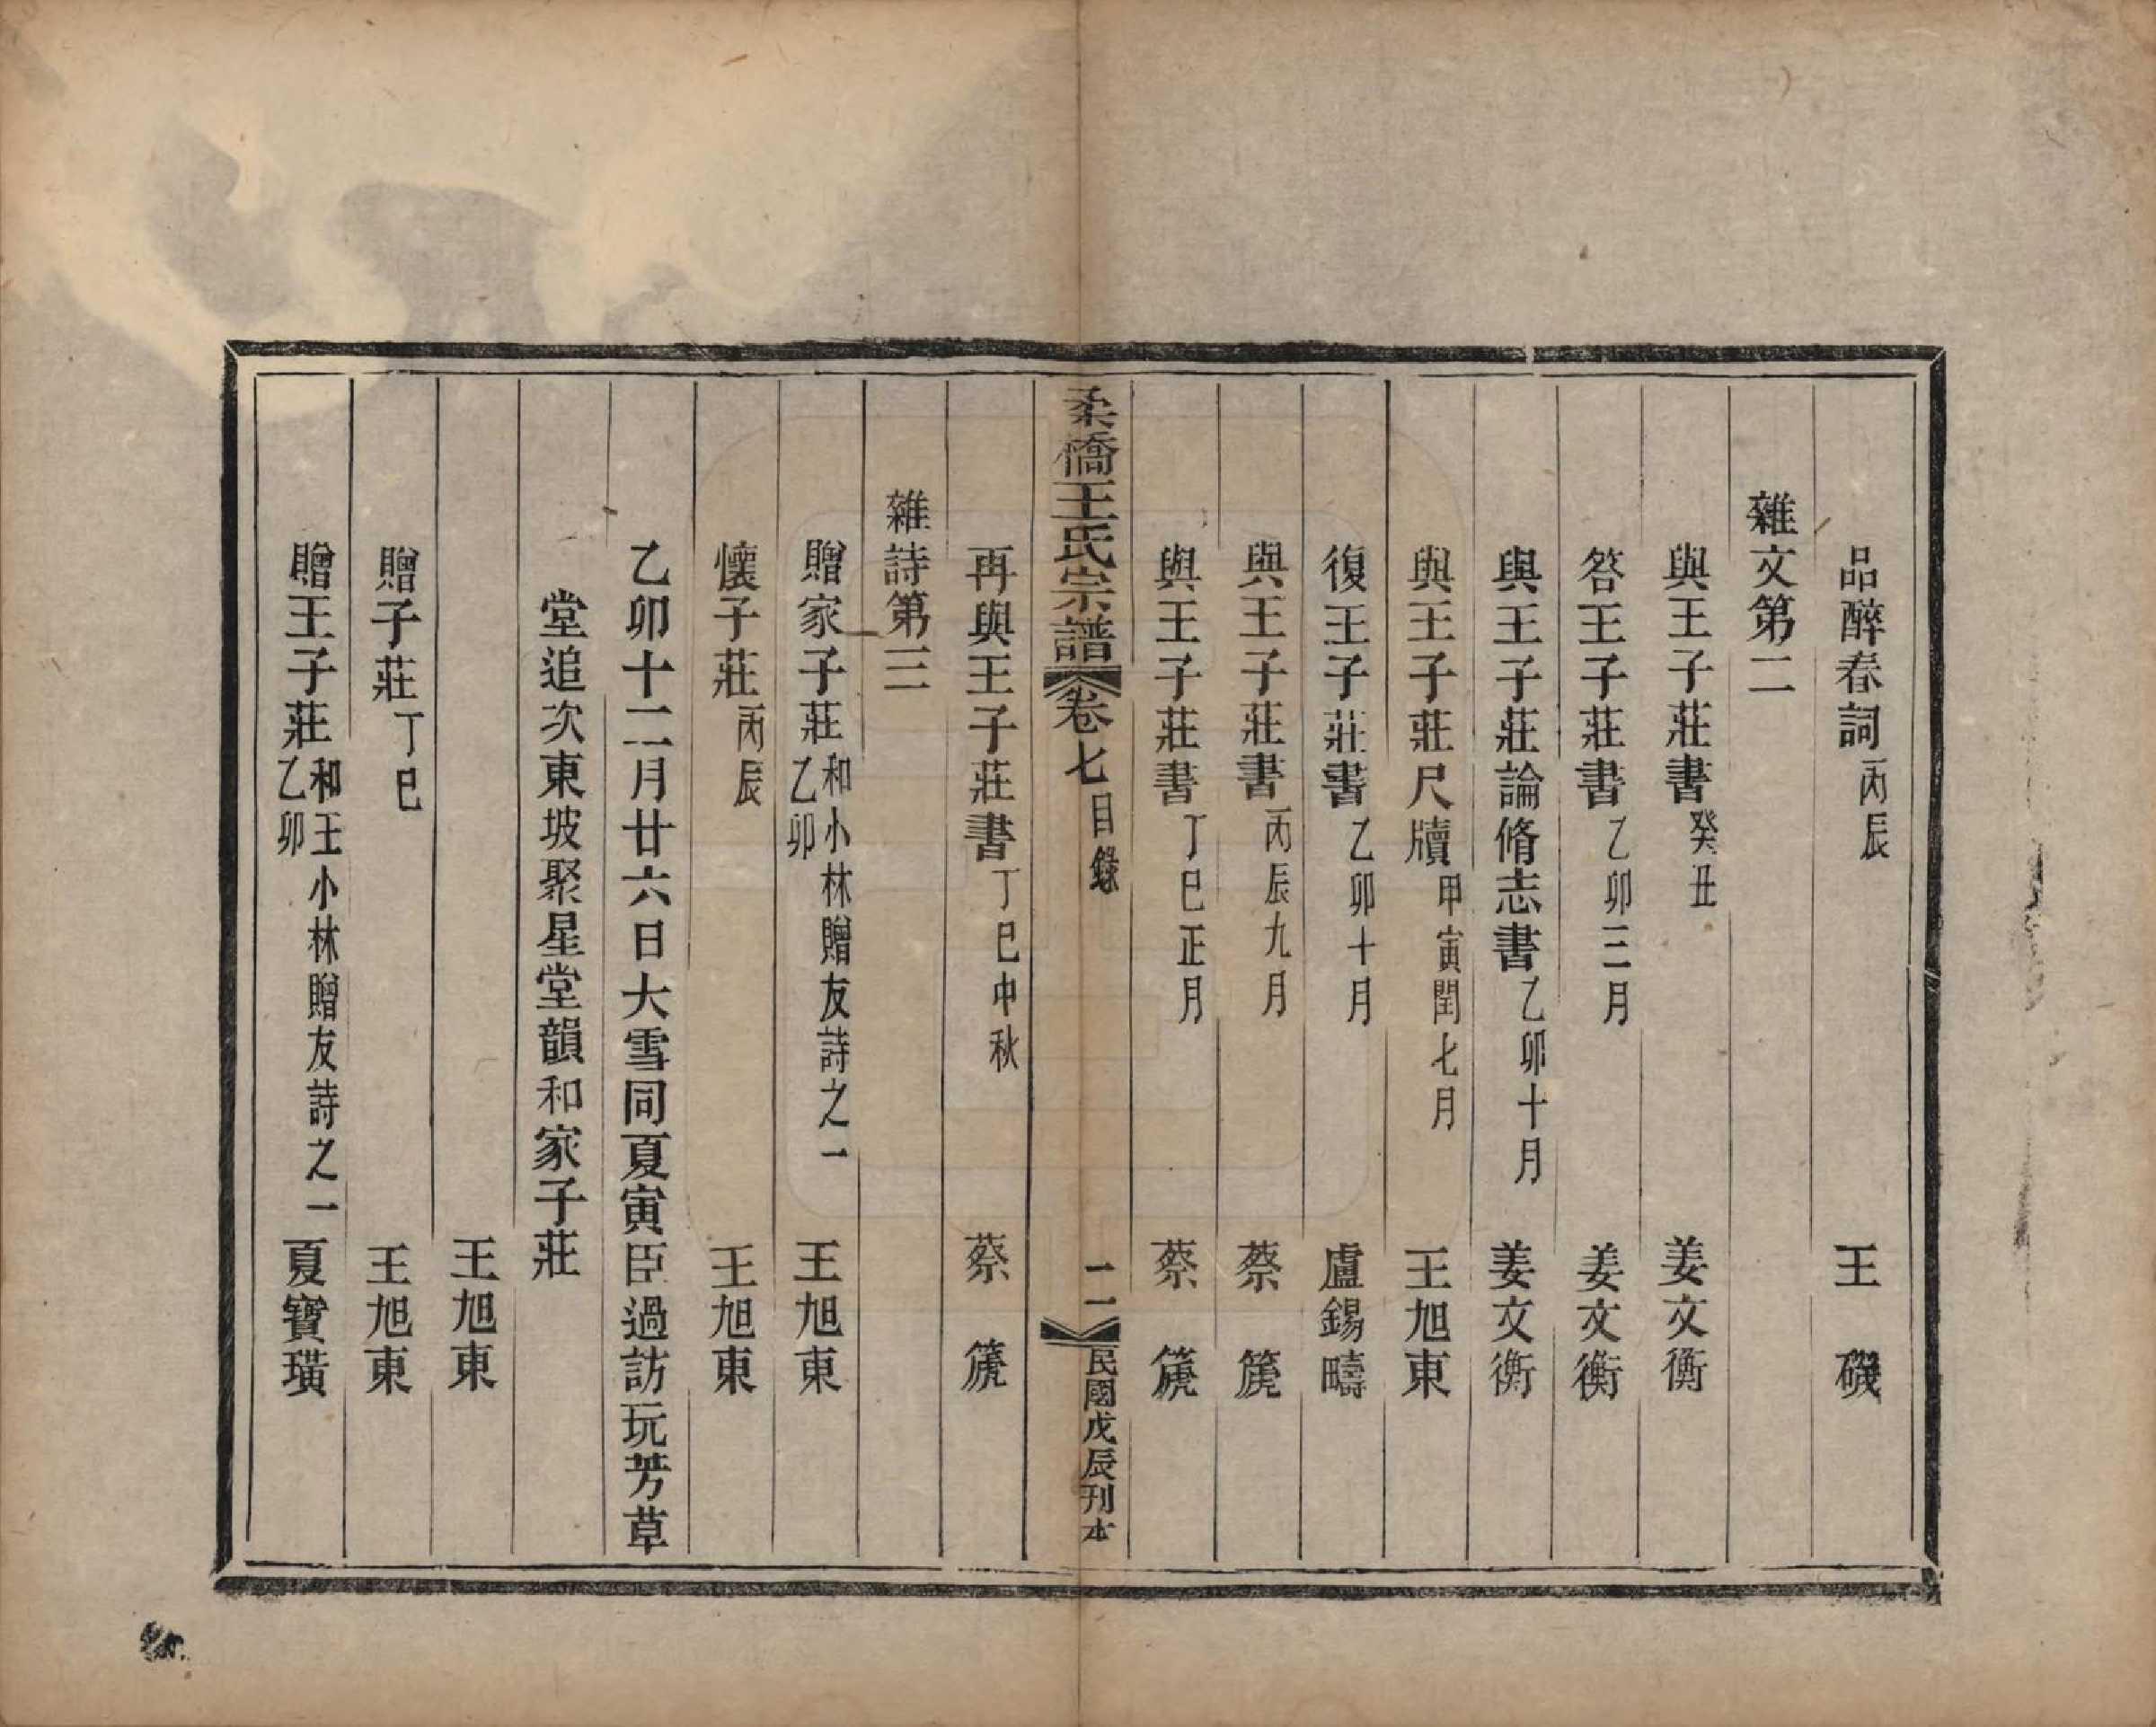 品醉春詞丙辰　王磯
雜文第二
與王子莊書癸丑　姜文衡
答王子莊書乙卯三月　姜文衡
與王子莊論脩志書乙卯十月　姜文衡
與王子莊尺牘甲寅閏七月　王旭東
復王子莊書乙卯十月　盧錫疇
與王子莊書丙辰九月　蔡箎
與王子莊書丁巳正月　蔡箎
柔橋王氏宗譜　卷七目錄　二　民國戊辰刊本
再與王子莊書丁巳中秋　蔡箎
雜詩第三
贈家子莊和小林贈友詩之一乙卯　王旭東
懷子莊丙辰　王旭東
乙卯十二月廿六日大雪同夏寅臣過訪玩芳草
堂追次東坡聚星堂韻和家子莊
王旭東
贈子莊丁巳　王旭東
贈王子莊和王小林贈友詩之一乙卯　夏寶璜